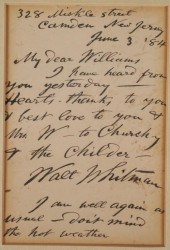 328 Mickle street
Camden New Jersey
June 3 '84
My dear Williams
I have heard from
you yesterday —
Hearts thanks to you
& best love to you &
the W — to Churchy
& the Childer —
Walt Whitman
I am well again as
usual — don't mind
the hot weather